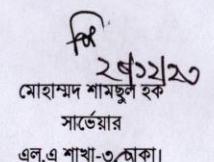 ২৭/১২/২৩
মোহাম্মদ শামছুল হক
সার্ভেয়ার
এল.এ শাখা-৩, ঢাকা।